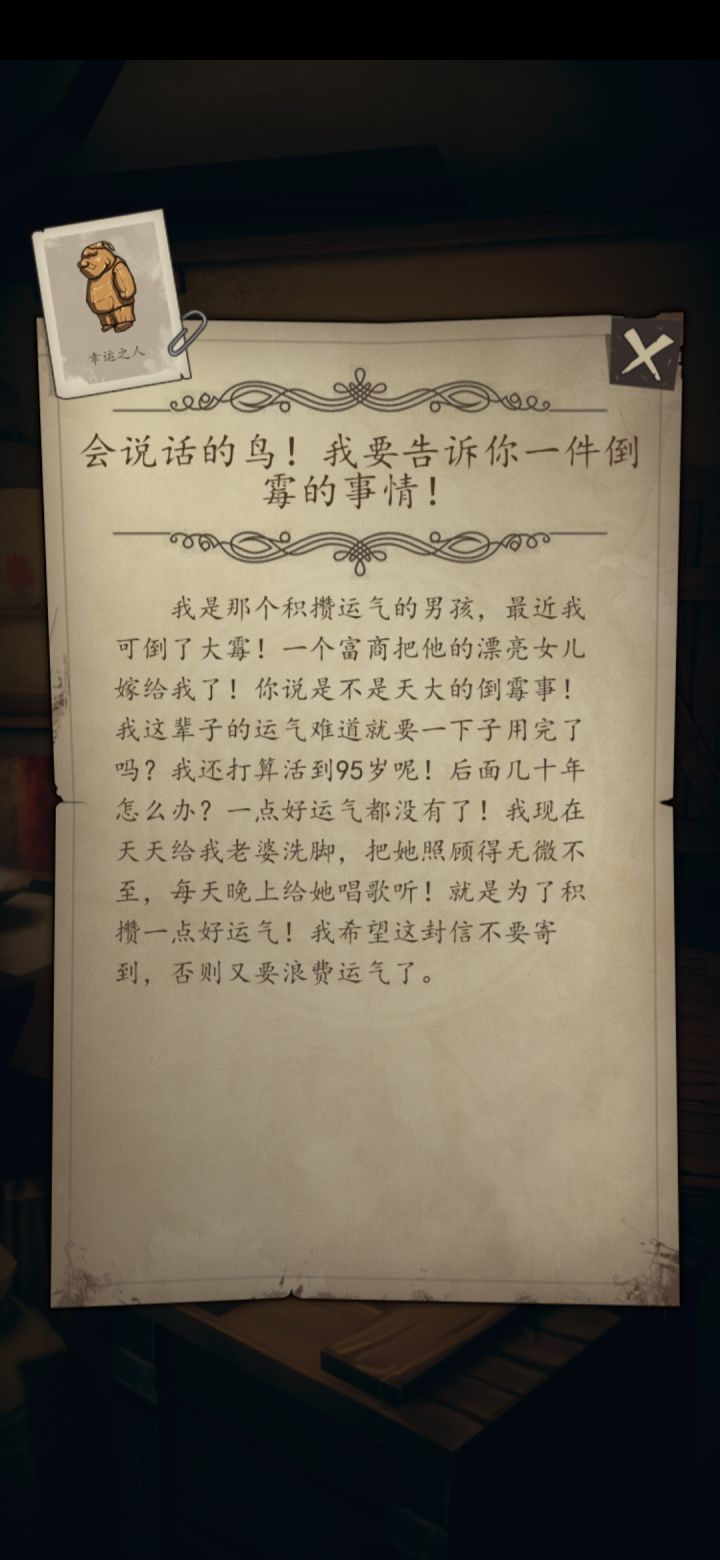 幸运之人
会说话的鸟！我要告诉你一件倒
霉的事情！
我是那个积攒运气的男孩，最近我
可倒了大霉！一个富商把他的漂亮女儿
嫁给我了！你说是不是天大的倒霉事！
我这辈子的运气难道就要一下子用完了
吗？我还打算活到95岁呢！后面几十年
怎么办？一点好运气都没有了！我现在
天天给我老婆洗脚，把她照顾得无微不
至，每天晚上给她唱歌听！就是为了积
攒一点好运气！我希望这封信不要寄
到，否则又要浪费运气了。